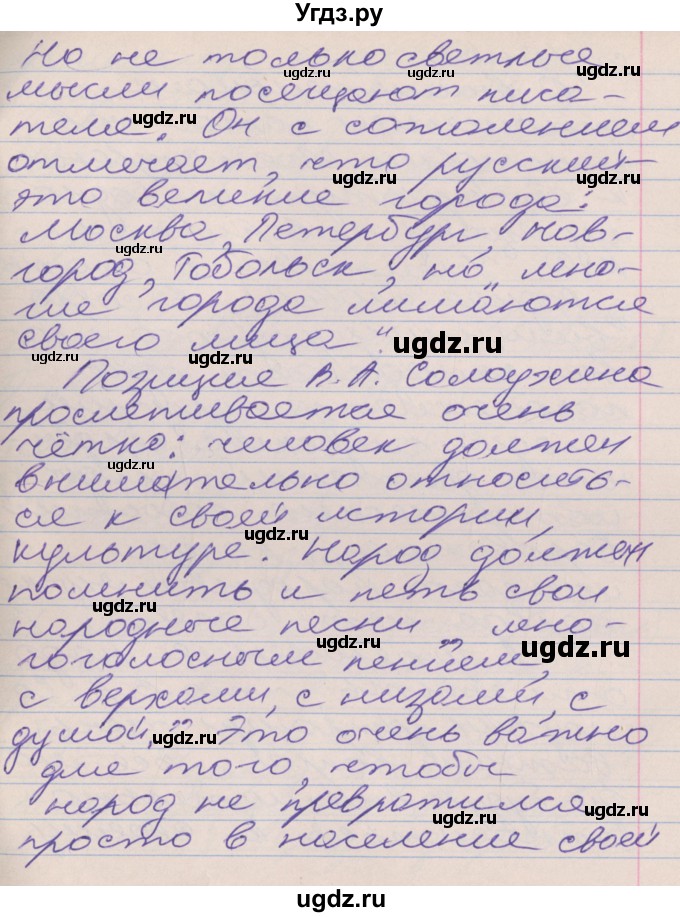 Угдз.ру
Но не только светлые
мысли посещают писа-
теля. Он с сожалением
отмечает, что русский -
это великие города:
Москва, Петербург, Нов-
город, Тобольск, но „мно-
гие города лишаются
своего лица".
Позиция В. А. Солоухина
прослеживается очень
чётко: человек должен
внимательно относить-
ся к своей истории,
культуре. Народ должен
помнить и петь свои
народные песни „мно-
гоголосным пением,
с верхами, с низами, с
душой." Это очень важно
для того, чтобы
народ не превратился
просто в население своей
ugdz.ru